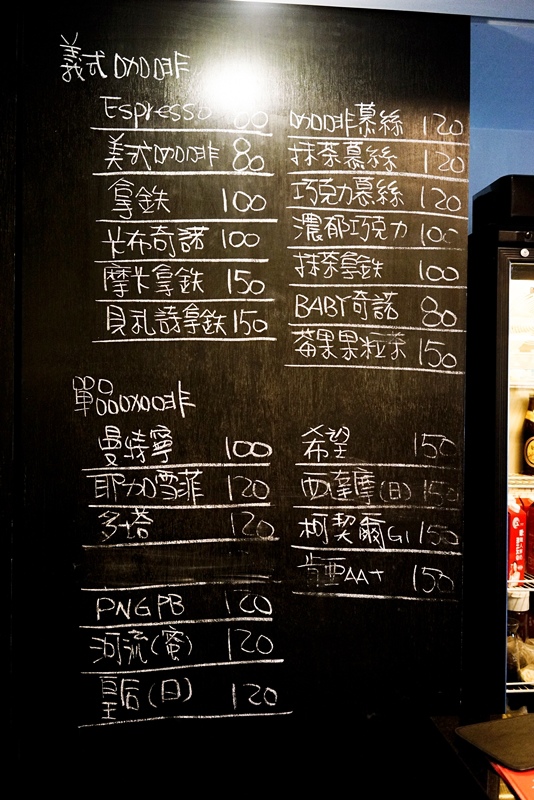 義式咖啡
Espresso
美式咖啡 80
拿鐵 100
卡布奇諾 100
摩卡拿鐵 150
貝禮詩拿鐵 150
咖啡慕絲 120
抹茶慕絲 120
巧克力慕絲 120
濃郁巧克力 100
抹茶拿鐵 100
BABY奇諾 80
莓果果粒茶 150
單品咖啡
曼特寧 100
耶加雪菲 120
多塔 120
PNGPB 120
河流(蜜) 120
皇后(日) 120
希望 150
西達摩(日) 150
柯契爾G1 150
肯亞AA+ 150